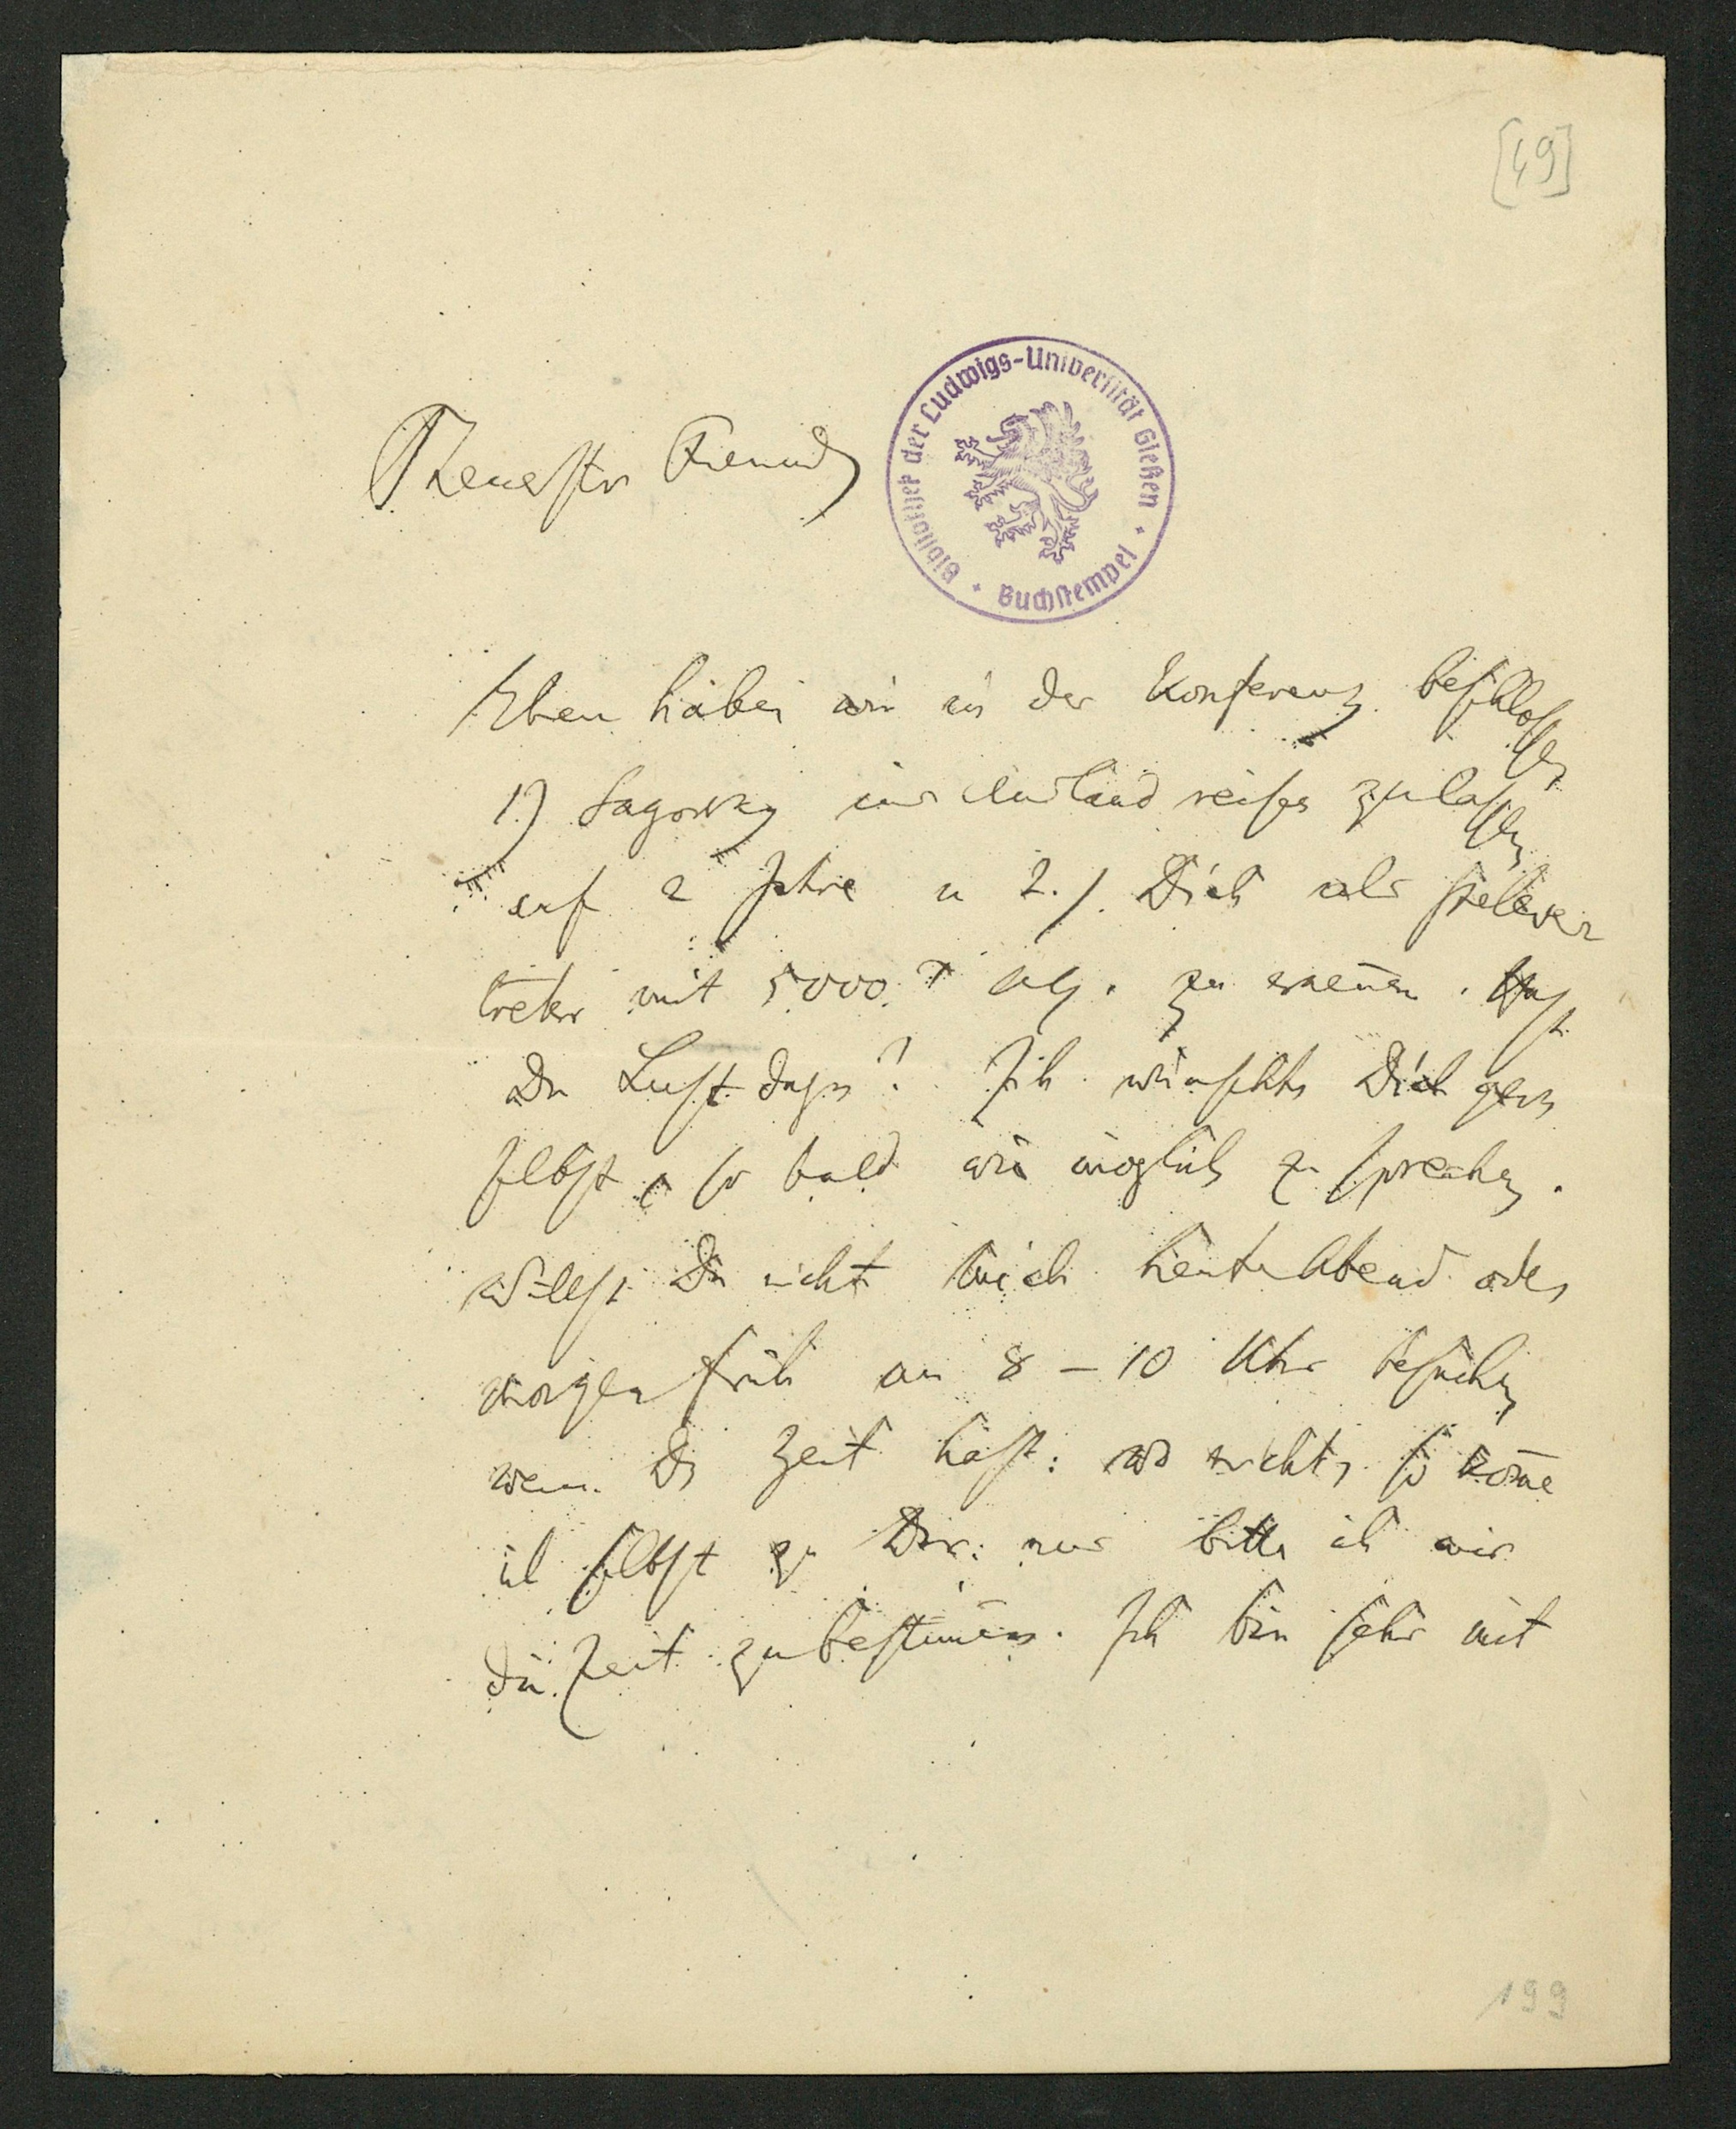 [49]
Theuerster Freund
Bibliothek der Ludwigs-Universität Gießen
Buchstempel
Eben haben wir in der Konferenz beschlossen
1) Sagorsky ins Ausland reisen zu lassen
auf 2 Jahre u 2.) Dich als stellver
treter mit 5000 zu ernen̄en. Hast
Du Lust dazu? Ich wünschte Dich gern
selbst so bald wie möglich zu sprechen.
Willst Du nicht mich heute Abend oder
morgen früh um 8 – 10 Uhr besuchen
wenn Du Zeit hast: wo nicht, so kom̄e
ich selbst zu Dir: nur bitte ich mir
die Zeit zu bestim̄en. Ich bin sehr mit
199